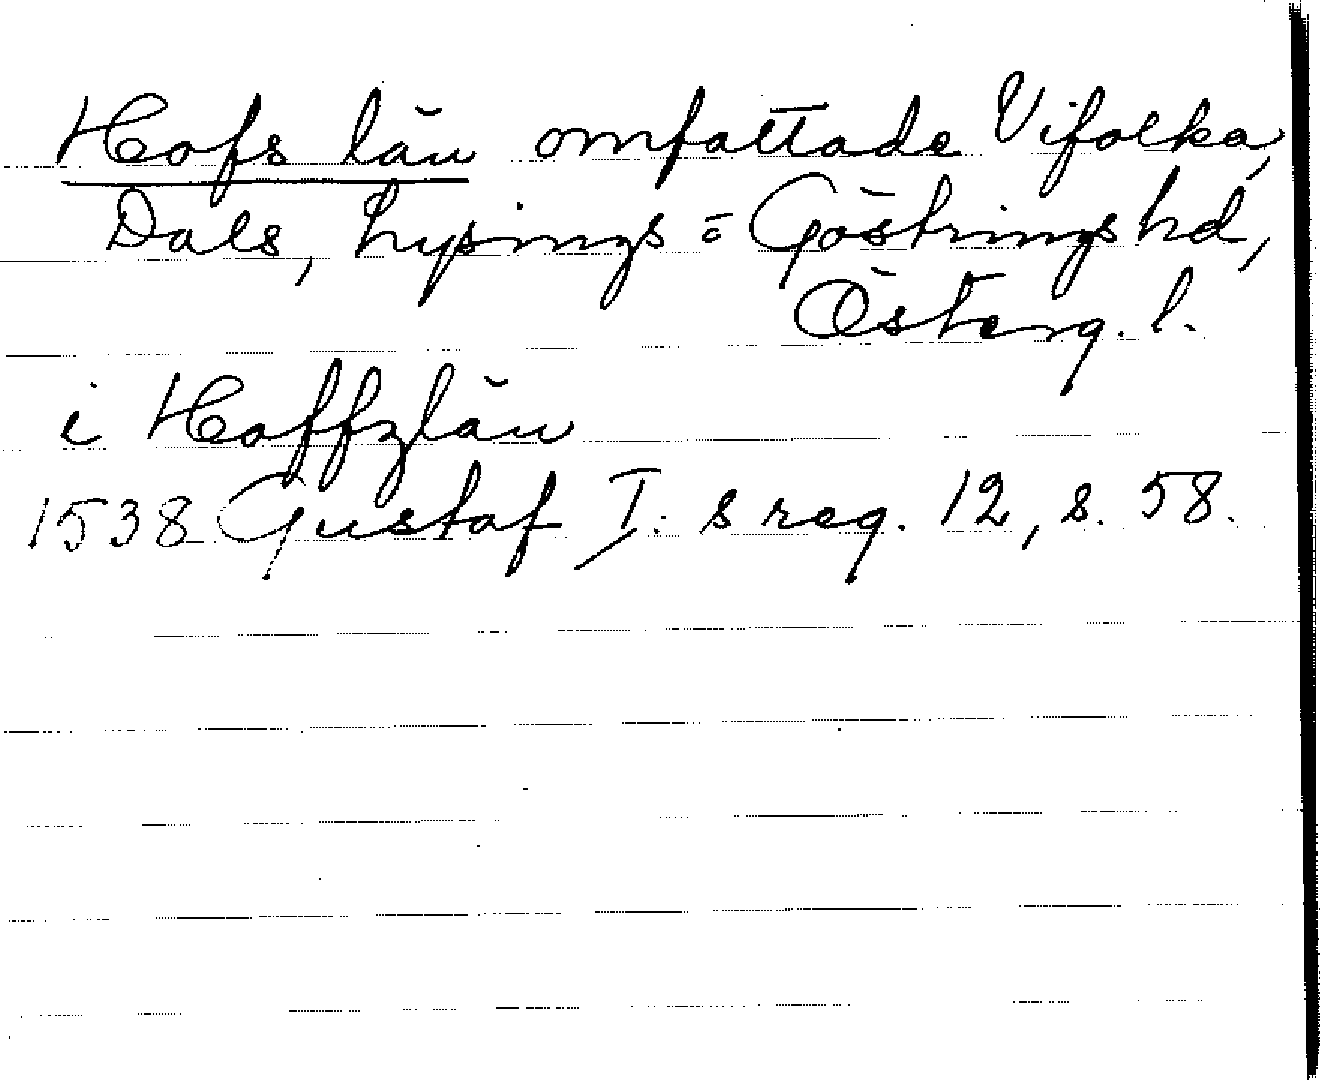 Hofs län omfattade Vifolka,
Dals, Lysings o Göstrings hd,
Österg. l.
i Hoffzlän
1538 Gustaf I:s reg. 12, s. 58.